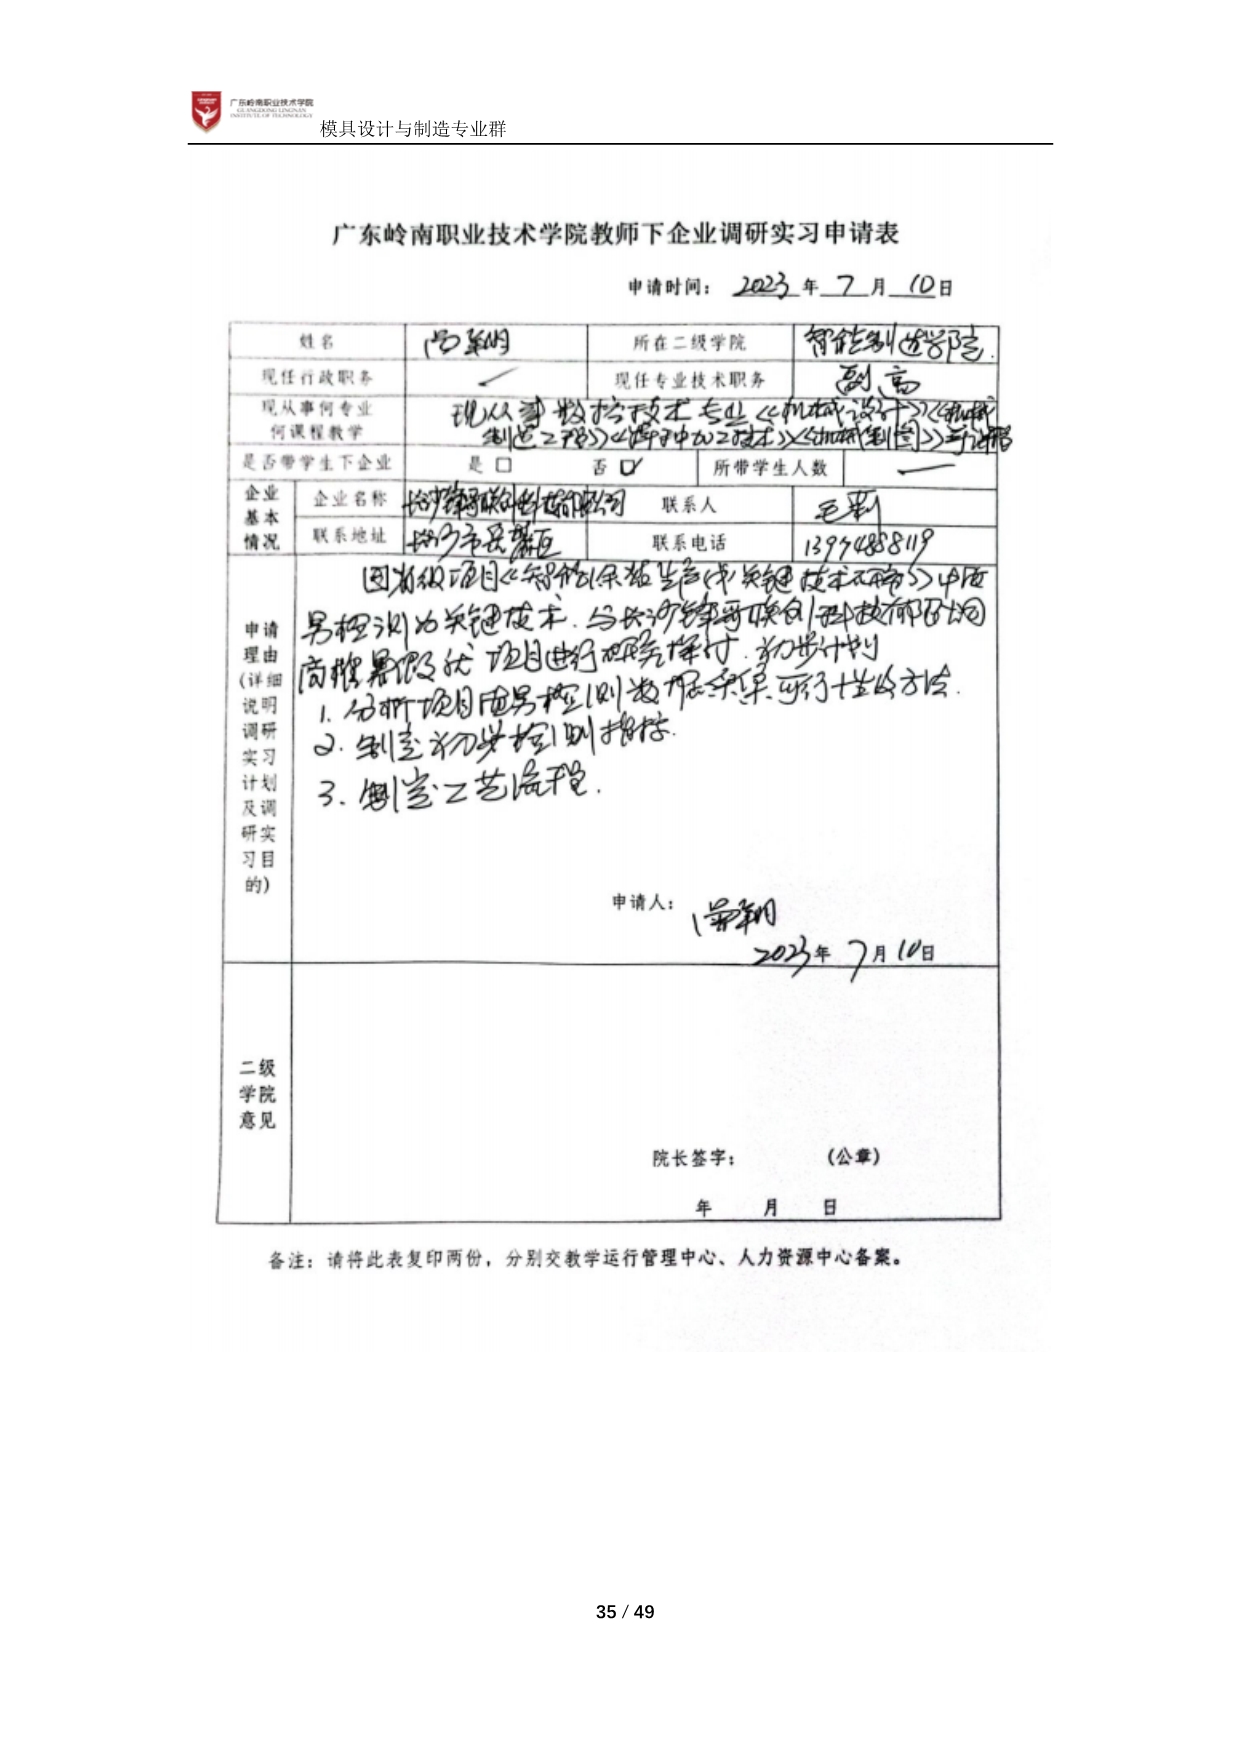 广东岭南职业技术学院
GUANGDONG LINGNAN
INSTITUTE OF TECHNOLOGY
模具设计与制造专业群
广东岭南职业技术学院教师下企业调研实习申请表
申请时间： 2023 年 7 月 10 日
姓名 所在二级学院 智能制造学院
现任行政职务 现任专业技术职务 副高
现从事何专业 现从事数控技术专业《机械设计》《机械
何课程教学 制造工程》《特种加工技术》《机械制图》等课程
是否带学生下企业 是 □ 否 ☑ 所带学生人数 —
企业基本情况
企业名称 长沙锋哥联创科技有限公司 联系人 毛莉
联系地址 长沙市岳麓区 联系电话 13974888119
申请理由（详细说明调研实习计划及调研实习目的）
因省级项目《智能 生产线关键技术研究》中
检测为关键技术．与长沙锋哥联创科技有限公司
暑假及 项目进行研究探讨．初步计划
1. 分析项目 检测数据采集可行性及方法．
2. 制定初步检测指标．
3. 制定工艺流程．
申请人：
2023 年 7 月 10 日
二级学院意见
院长签字： （公章）
年 月 日
备注：请将此表复印两份，分别交教学运行管理中心、人力资源中心备案。
35 / 49